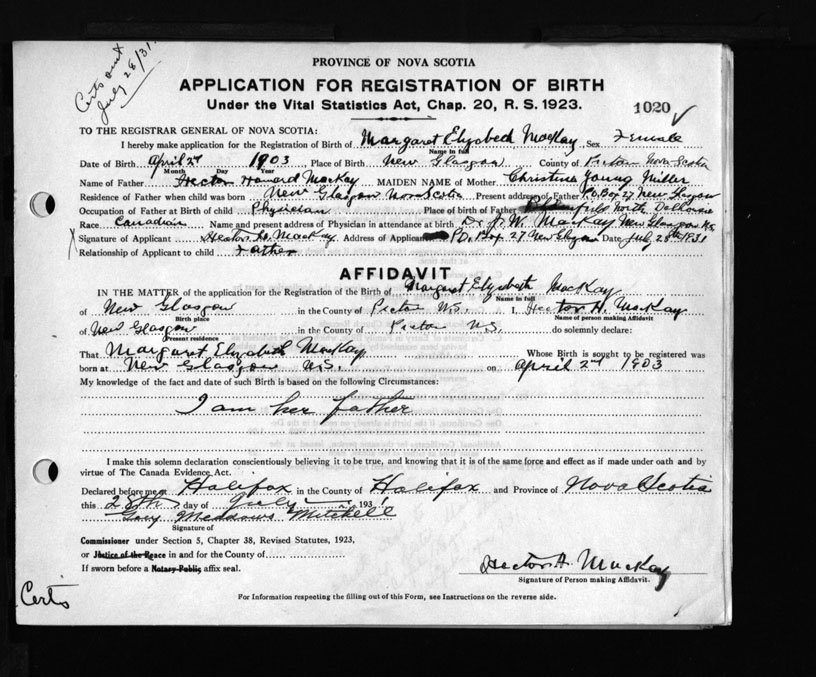 Certs sent
July 28/31.
PROVINCE OF NOVA SCOTIA
APPLICATION FOR REGISTRATION OF BIRTH
Under the Vital Statistics Act, Chap. 20, R. S. 1923.
1020 ✓
TO THE REGISTRAR GENERAL OF NOVA SCOTIA:
I hereby make application for the Registration of Birth of Margaret Elizabeth MacKay, Sex Female
Name in full
Date of Birth April 2nd 1903, Place of Birth New Glasgow County of Pictou Nova Scotia
Month Day Year
Name of Father Hector Howard MacKay MAIDEN NAME of Mother Christine Young Miller
Residence of Father when child was born New Glasgow Nova Scotia Present address of Father P.O. Box 27 New Glasgow
Occupation of Father at Birth of child Physician Place of birth of Father North Dalhousie
Race Canadian Name and present address of Physician in attendance at birth Dr. J. W. MacKay New Glasgow N.S.
Signature of Applicant Hector H. MacKay. Address of Applicant P.O. Box 27 New Glasgow Date July 28th 1931
Relationship of Applicant to child Father
AFFIDAVIT
IN THE MATTER of the application for the Registration of the Birth of Margaret Elizabeth MacKay
Name in full
of New Glasgow in the County of Pictou N.S. I, Hector H. MacKay
Birth place Name of person making Affidavit
of New Glasgow in the County of Pictou N.S. do solemnly declare:
Present residence
That Margaret Elizabeth MacKay Whose Birth is sought to be registered was
born at New Glasgow N.S. on April 2nd 1903
My knowledge of the fact and date of such Birth is based on the following Circumstances:
I am her father
I make this solemn declaration conscientiously believing it to be true, and knowing that it is of the same force and effect as if made under oath and by
virtue of The Canada Evidence Act.
Declared before me at Halifax in the County of Halifax and Province of Nova Scotia
this 28th day of July 1931
Meadows Mitchell
Signature of
Commissioner under Section 5, Chapter 38, Revised Statutes, 1923,
or Justice of the Peace in and for the County of
If sworn before a Notary Public affix seal.
Hector H. MacKay
Signature of Person making Affidavit.
Certs
For Information respecting the filling out of this Form, see Instructions on the reverse side.